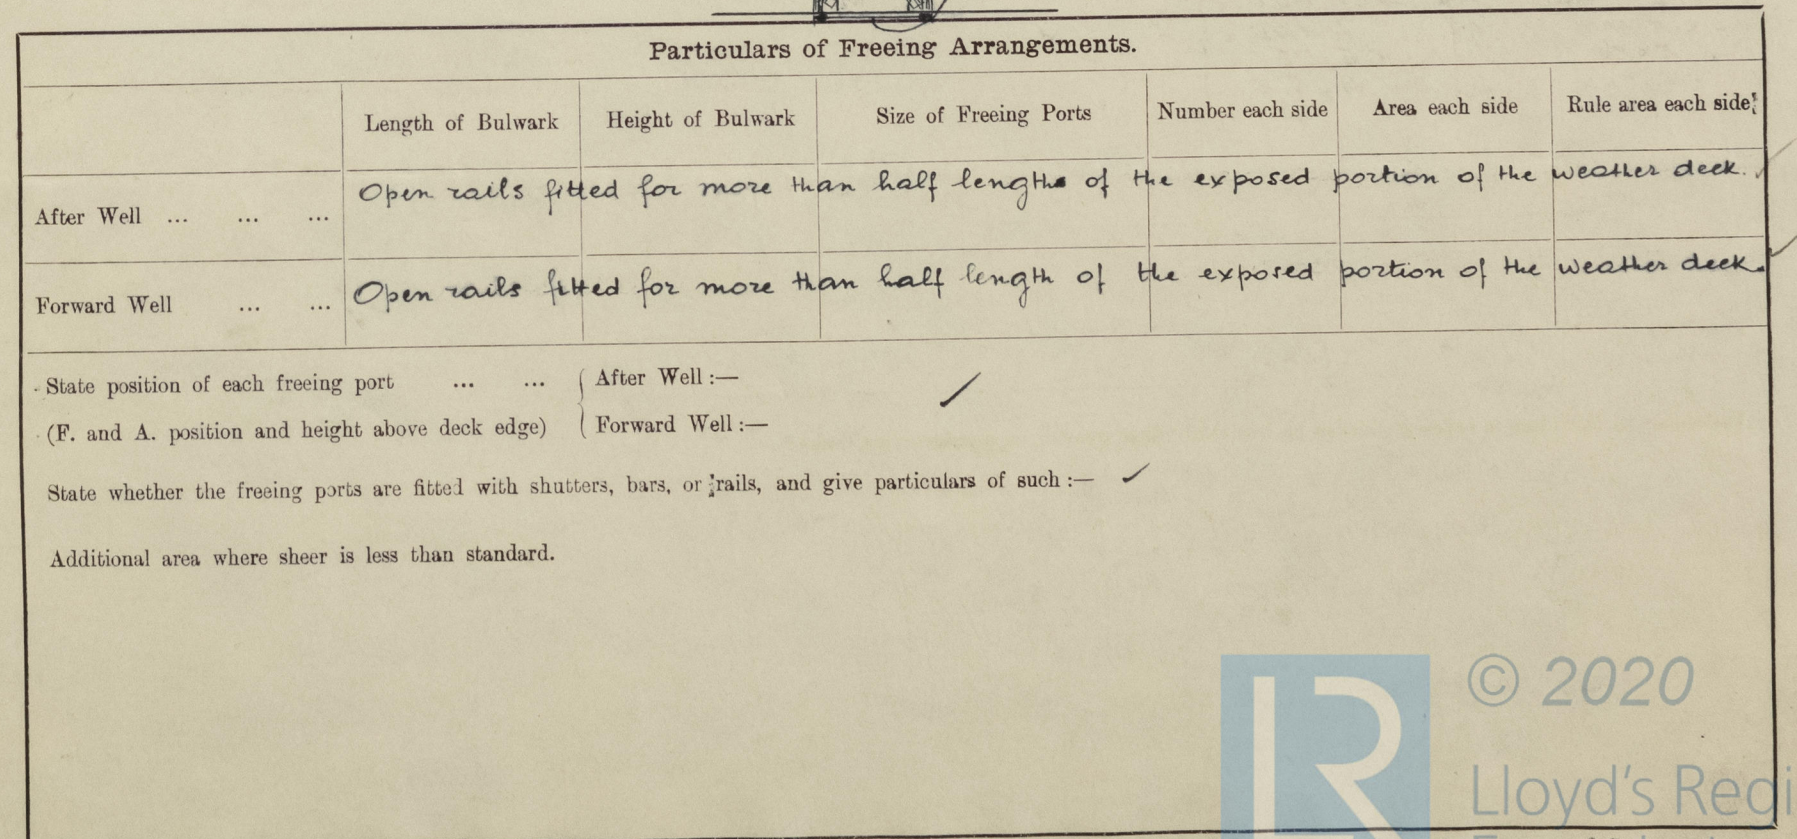 Particulars of Freeing Arrangements.
Length of Bulwark Height of Bulwark Size of Freeing Ports Number each side Area each side Rule area each side
After Well ... ... ... Open rails fitted for more than half length of the exposed portion of the weather deck.
Forward Well ... ... Open rails fitted for more than half length of the exposed portion of the weather deck.
State position of each freeing port ... ... After Well :—
(F. and A. position and height above deck edge) Forward Well :—
State whether the freeing ports are fitted with shutters, bars, or rails, and give particulars of such :—
Additional area where sheer is less than standard.
© 2020
Lloyd's Regi